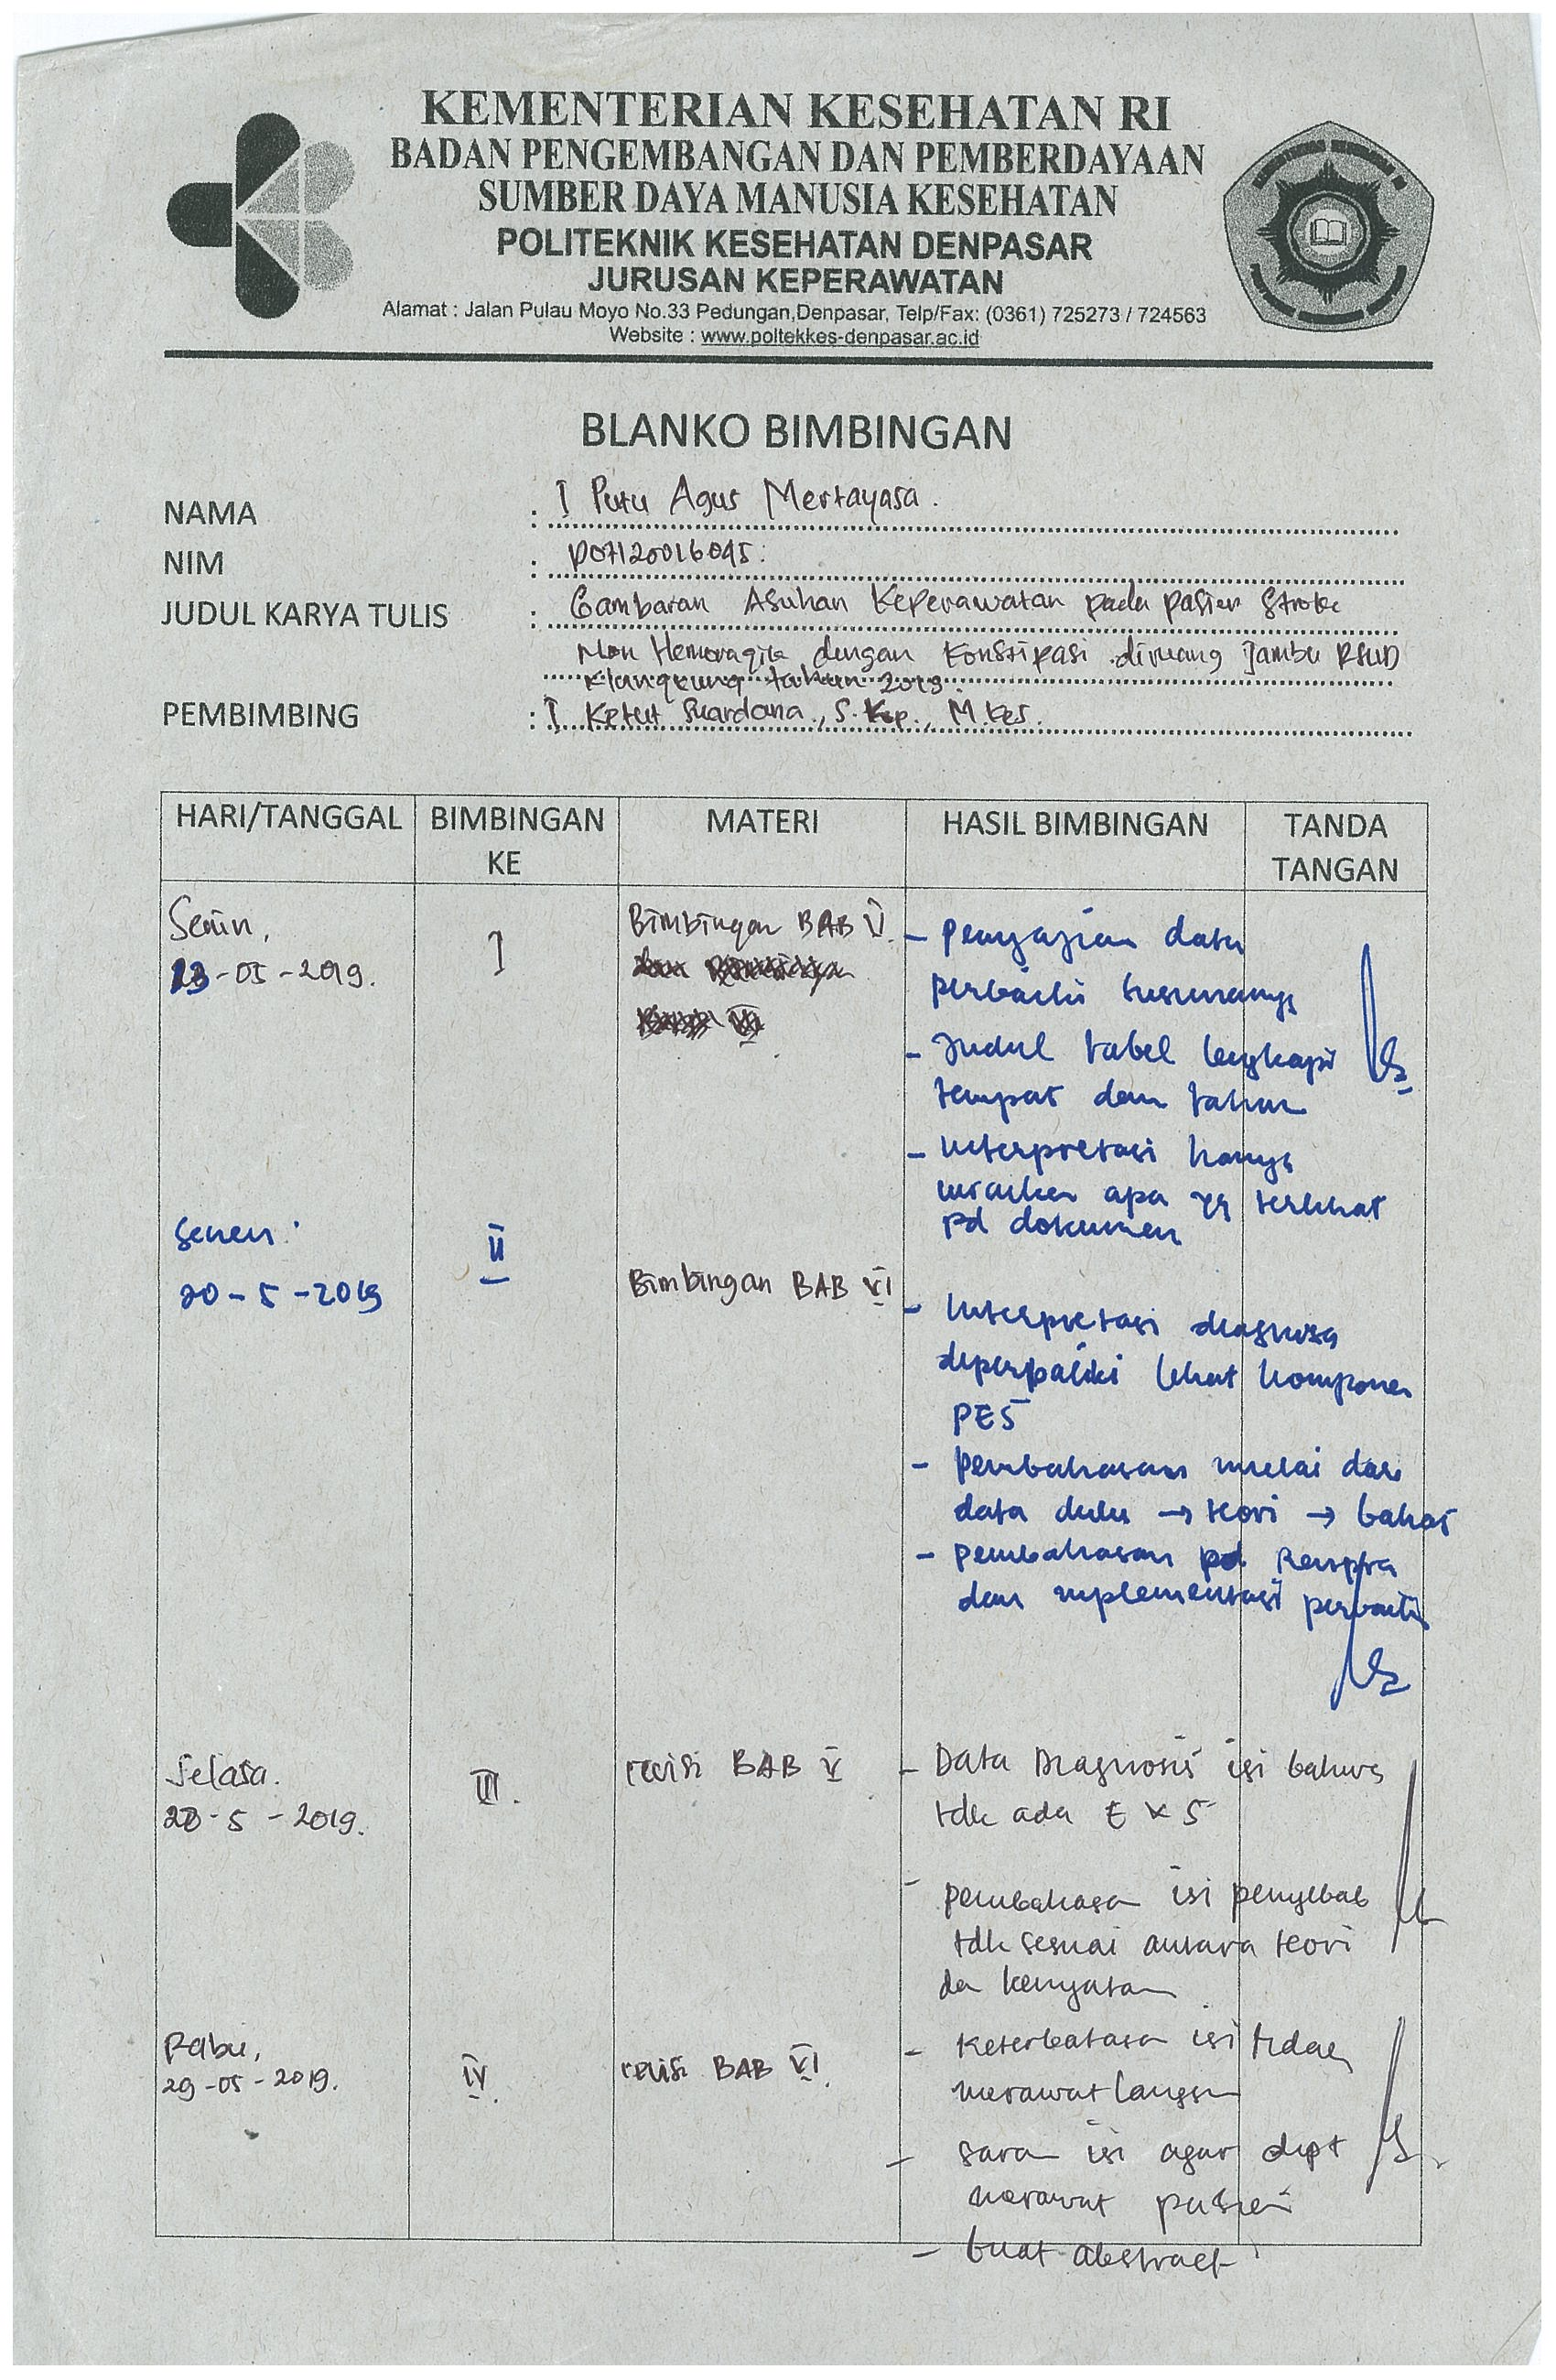 KEMENTERIAN KESEHATAN RI
BADAN PENGEMBANGAN DAN PEMBERDAYAAN
SUMBER DAYA MANUSIA KESEHATAN
POLITEKNIK KESEHATAN DENPASAR
JURUSAN KEPERAWATAN
Alamat : Jalan Pulau Moyo No.33 Pedungan,Denpasar, Telp/Fax: (0361) 725273 / 724563
Website : www.poltekkes-denpasar.ac.id
BLANKO BIMBINGAN
NAMA : I Putu Agus Mertayasa.
NIM : P07120016045.
JUDUL KARYA TULIS : Gambaran Asuhan Keperawatan pada pasien Stroke
Non Hemoragik dengan Konstipasi diruang Jambu RSUD
Klungkung tahun 2019.
PEMBIMBING : I Ketut Suardana., S.Kp., M.Kes.
HARI/TANGGAL BIMBINGAN KE MATERI HASIL BIMBINGAN TANDA TANGAN
Senin,
13-05-2019.
I
Bimbingan BAB V
- penyajian data
perbaiki susunannya
- Judul tabel lengkapi
tempat dan tahun
- Interpretasi hanya
uraikan apa yg terlihat
pd dokumen
Senen
20-5-2019
II
Bimbingan BAB VI
- Interpretasi diagnosa
diperbaiki lihat komponen
PES
- pembahasan mulai dari
data dulu → teori → bahas
- pembahasan pd Renpra
dan implementasi perbaiki
Selasa.
28-5-2019.
III.
revisi BAB V
- Data Diagnosis isi bahwa
tdk ada E & S
- pembahasa isi penyebab
tdk sesuai antara teori
da kenyataan
Rabu,
29-05-2019.
IV.
revisi BAB VI.
- Keterbatasa isi tidak
merawat langsu
- sara isi agar dapt
merawat pasien
- buat abstract